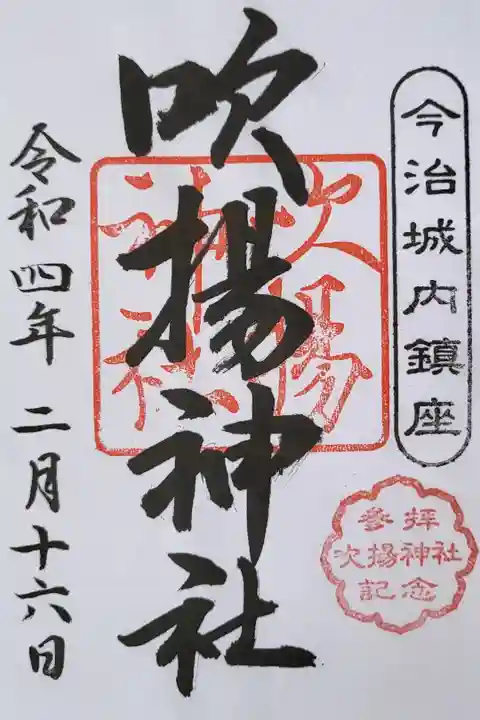 今治城内鎮座
吹揚神社
吹揚
神社
参拝
吹揚神社
記念
令和四年 二月十六日